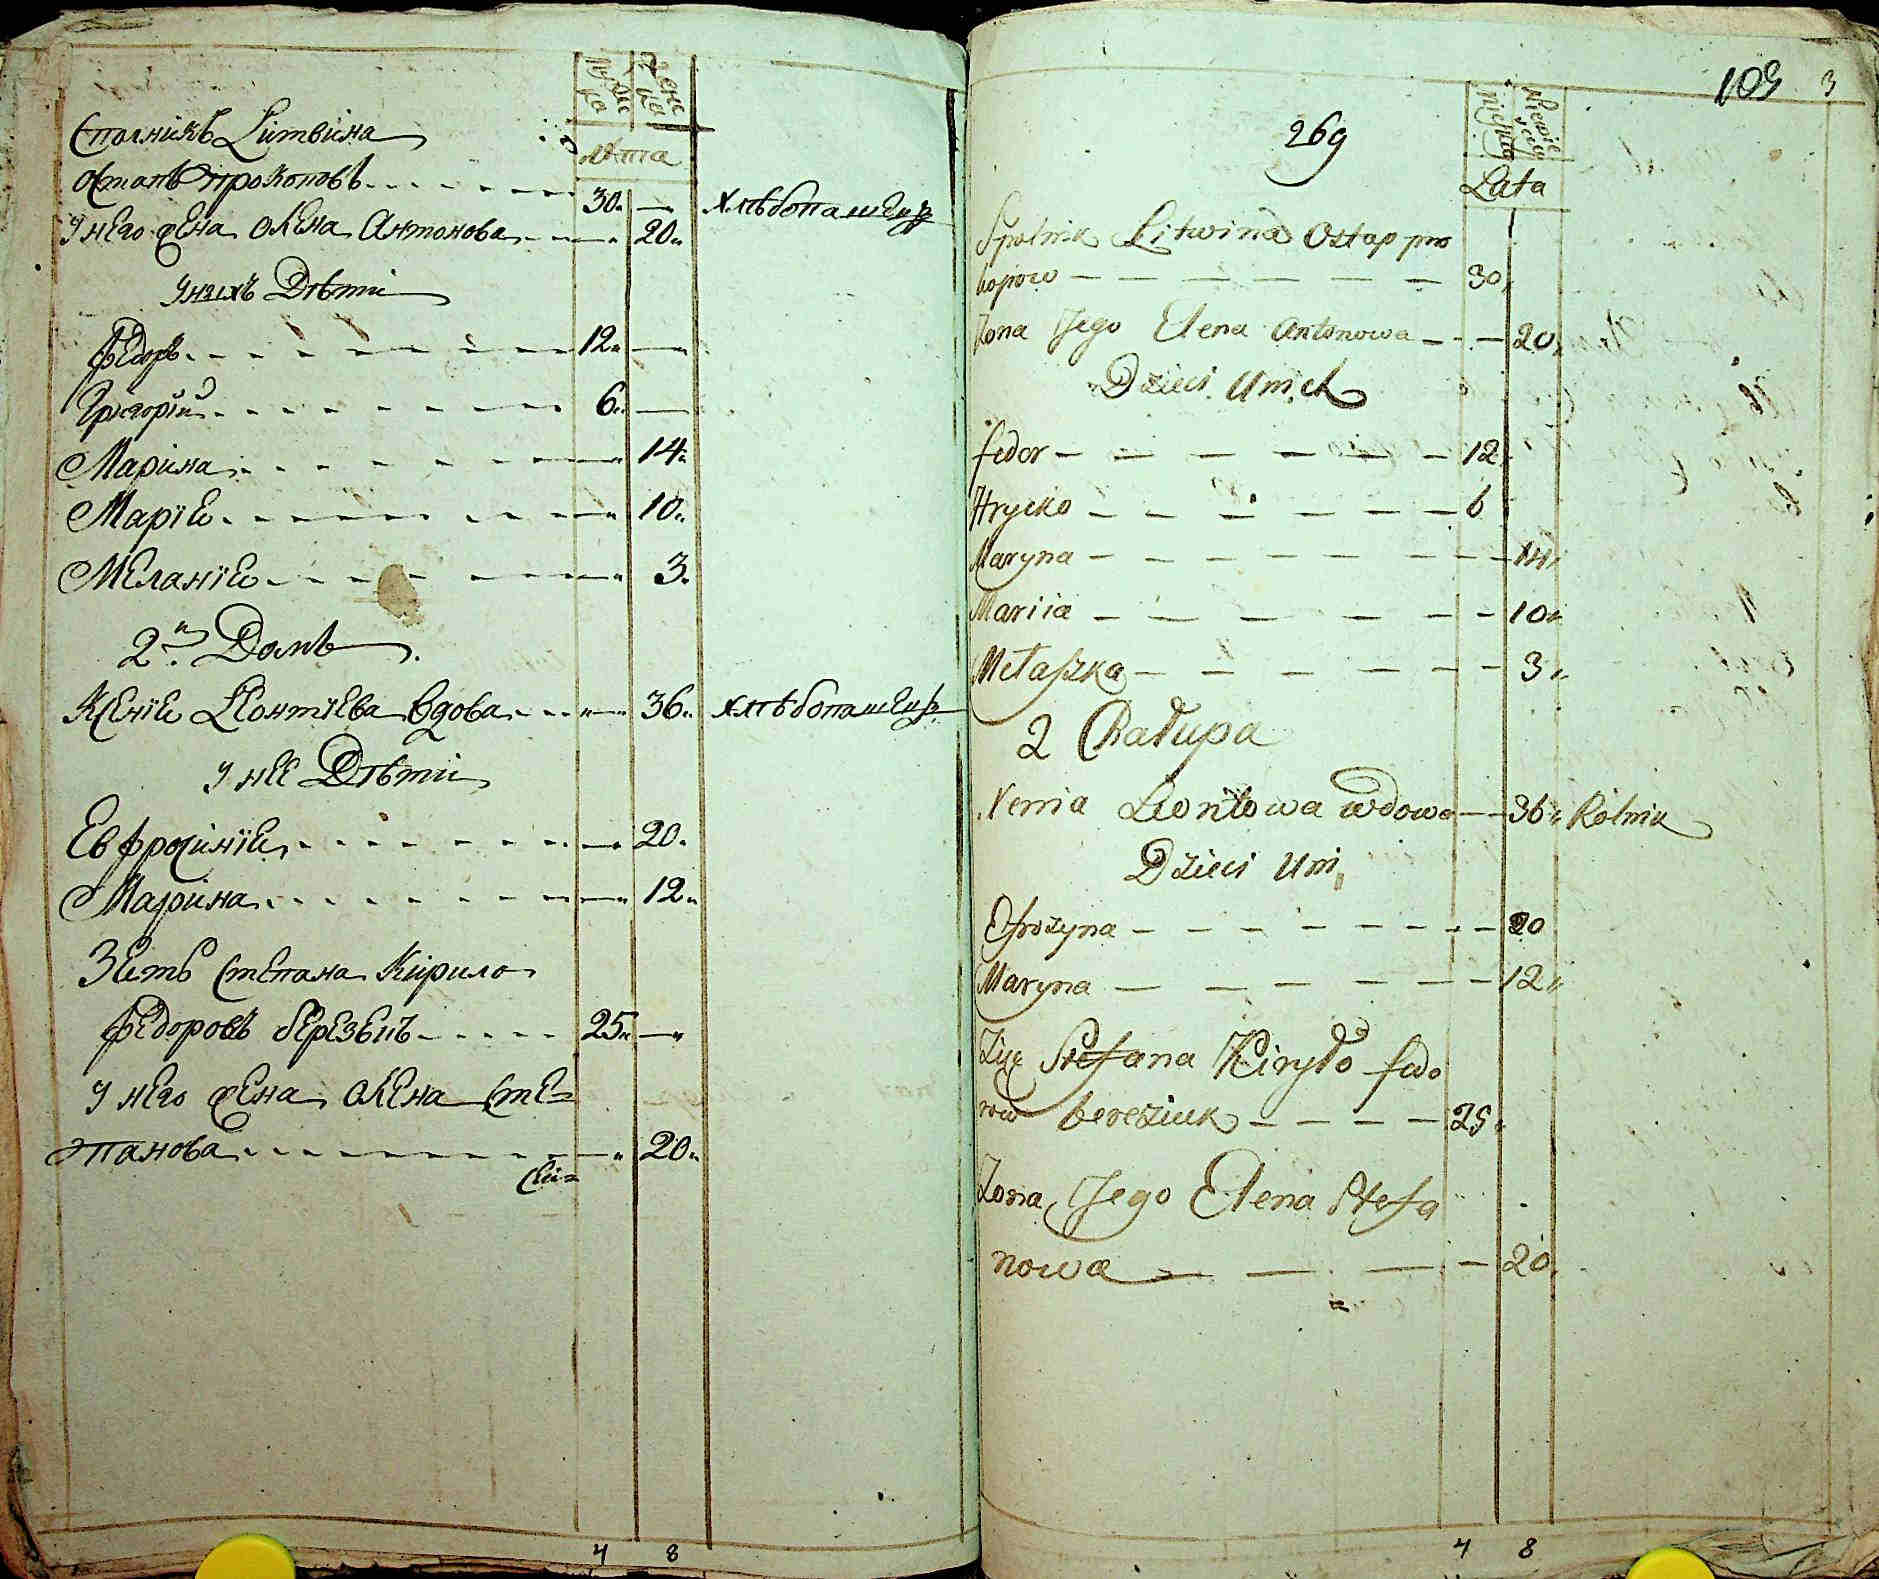 Муже
ска
Жене
ска
лѣта
Сполникъ Литвина
Остапъ Прокоповъ 30
хлѣбопашецъ
У него жена Олена Антонова 20
У нихъ Дѣти
Федоръ 12
Григорій 6
Марина 14
Марія 10
Меланія 3
2й Домъ
Ксенія Леонтіева вдова 36 хлѣбопашецъ
у нее Дѣти
Евфросинія 20
Марина 12
Зять Степана Кирило
Федоровъ березюкъ 25
у него жена Олена Сте=
панова 20
4 8
109 3
269
Lata
Spolnik Litwina Ostap pro
kopow 30
Zona Jego Elena Antonowa 20
Dzieci U nich
fedor 12
Hrycko 6
Maryna 14
Mariia 10
Mełaszka 3
2 Chałupa
Xenia Leontowa wdowa 36 Rolnik
Dzieci U ni
Ofrozyna 20
Maryna 12
Zięć Stefana Kiryło fedo
row bereziuk 25
Zona Jego Elena Stefa
nowa 20
4 8